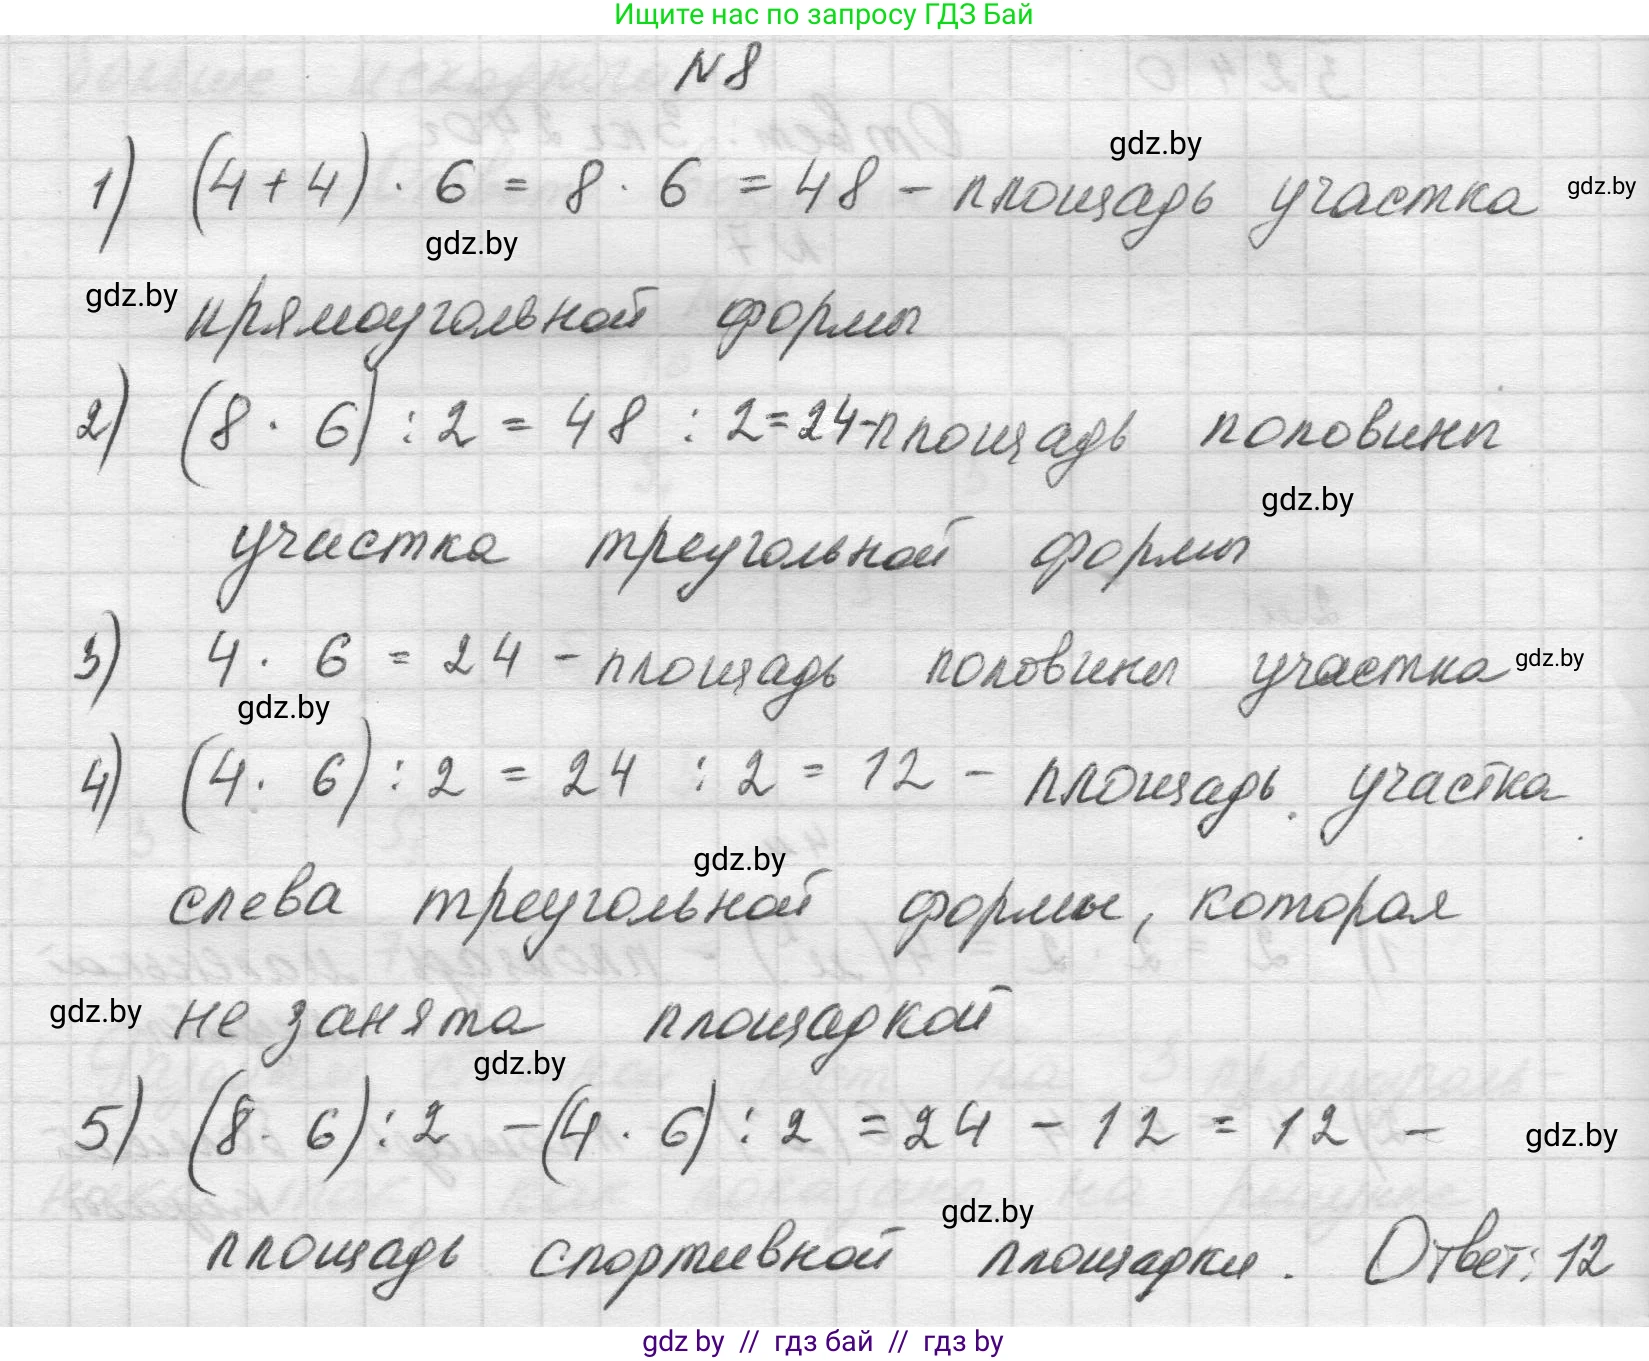 Ищите нас по запросу ГДЗ Бай
N8
gdz.by
1) (4+4) · 6 = 8 · 6 = 48 - площадь участка gdz.by
gdz.by
gdz.by прямоугольной формы
2) (8 · 6) : 2 = 48 : 2 = 24 - площадь половины
gdz.by
участка треугольной формы
3) 4 · 6 = 24 - площадь половины участка gdz.by
gdz.by
4) (4 · 6) : 2 = 24 : 2 = 12 - площадь участка
gdz.by
слева треугольной формы, которая
gdz.by не занята площадкой
gdz.by
5) (8 · 6) : 2 - (4 · 6) : 2 = 24 - 12 = 12 - gdz.by
gdz.by
площадь спортивной площадки. Ответ: 12
gdz by // гдз бай // гдз by